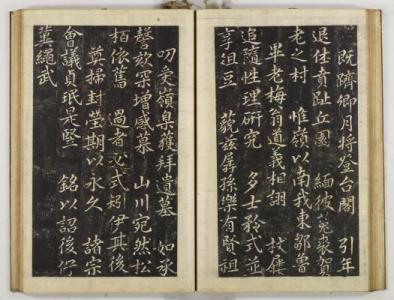 既躋卿月將登台閣 引年
退任賁趾丘園 緬彼菟裘賀
老之村 惟嶺以南我東鄒魯
畢老梅翁道義相詡 杖屨
追隨性理硏究 多士矜式並
享俎豆 藐玆孱孫樂有賢祖
叨秉嶺臬獲拜遺墓 如承
謦欬深增感慕 山川宛然松
栢依舊 過者必式矧伊其後
奠掃封塋期以永久 諸宗
會議貞珉是竪 銘以詔後俾
冀繩武